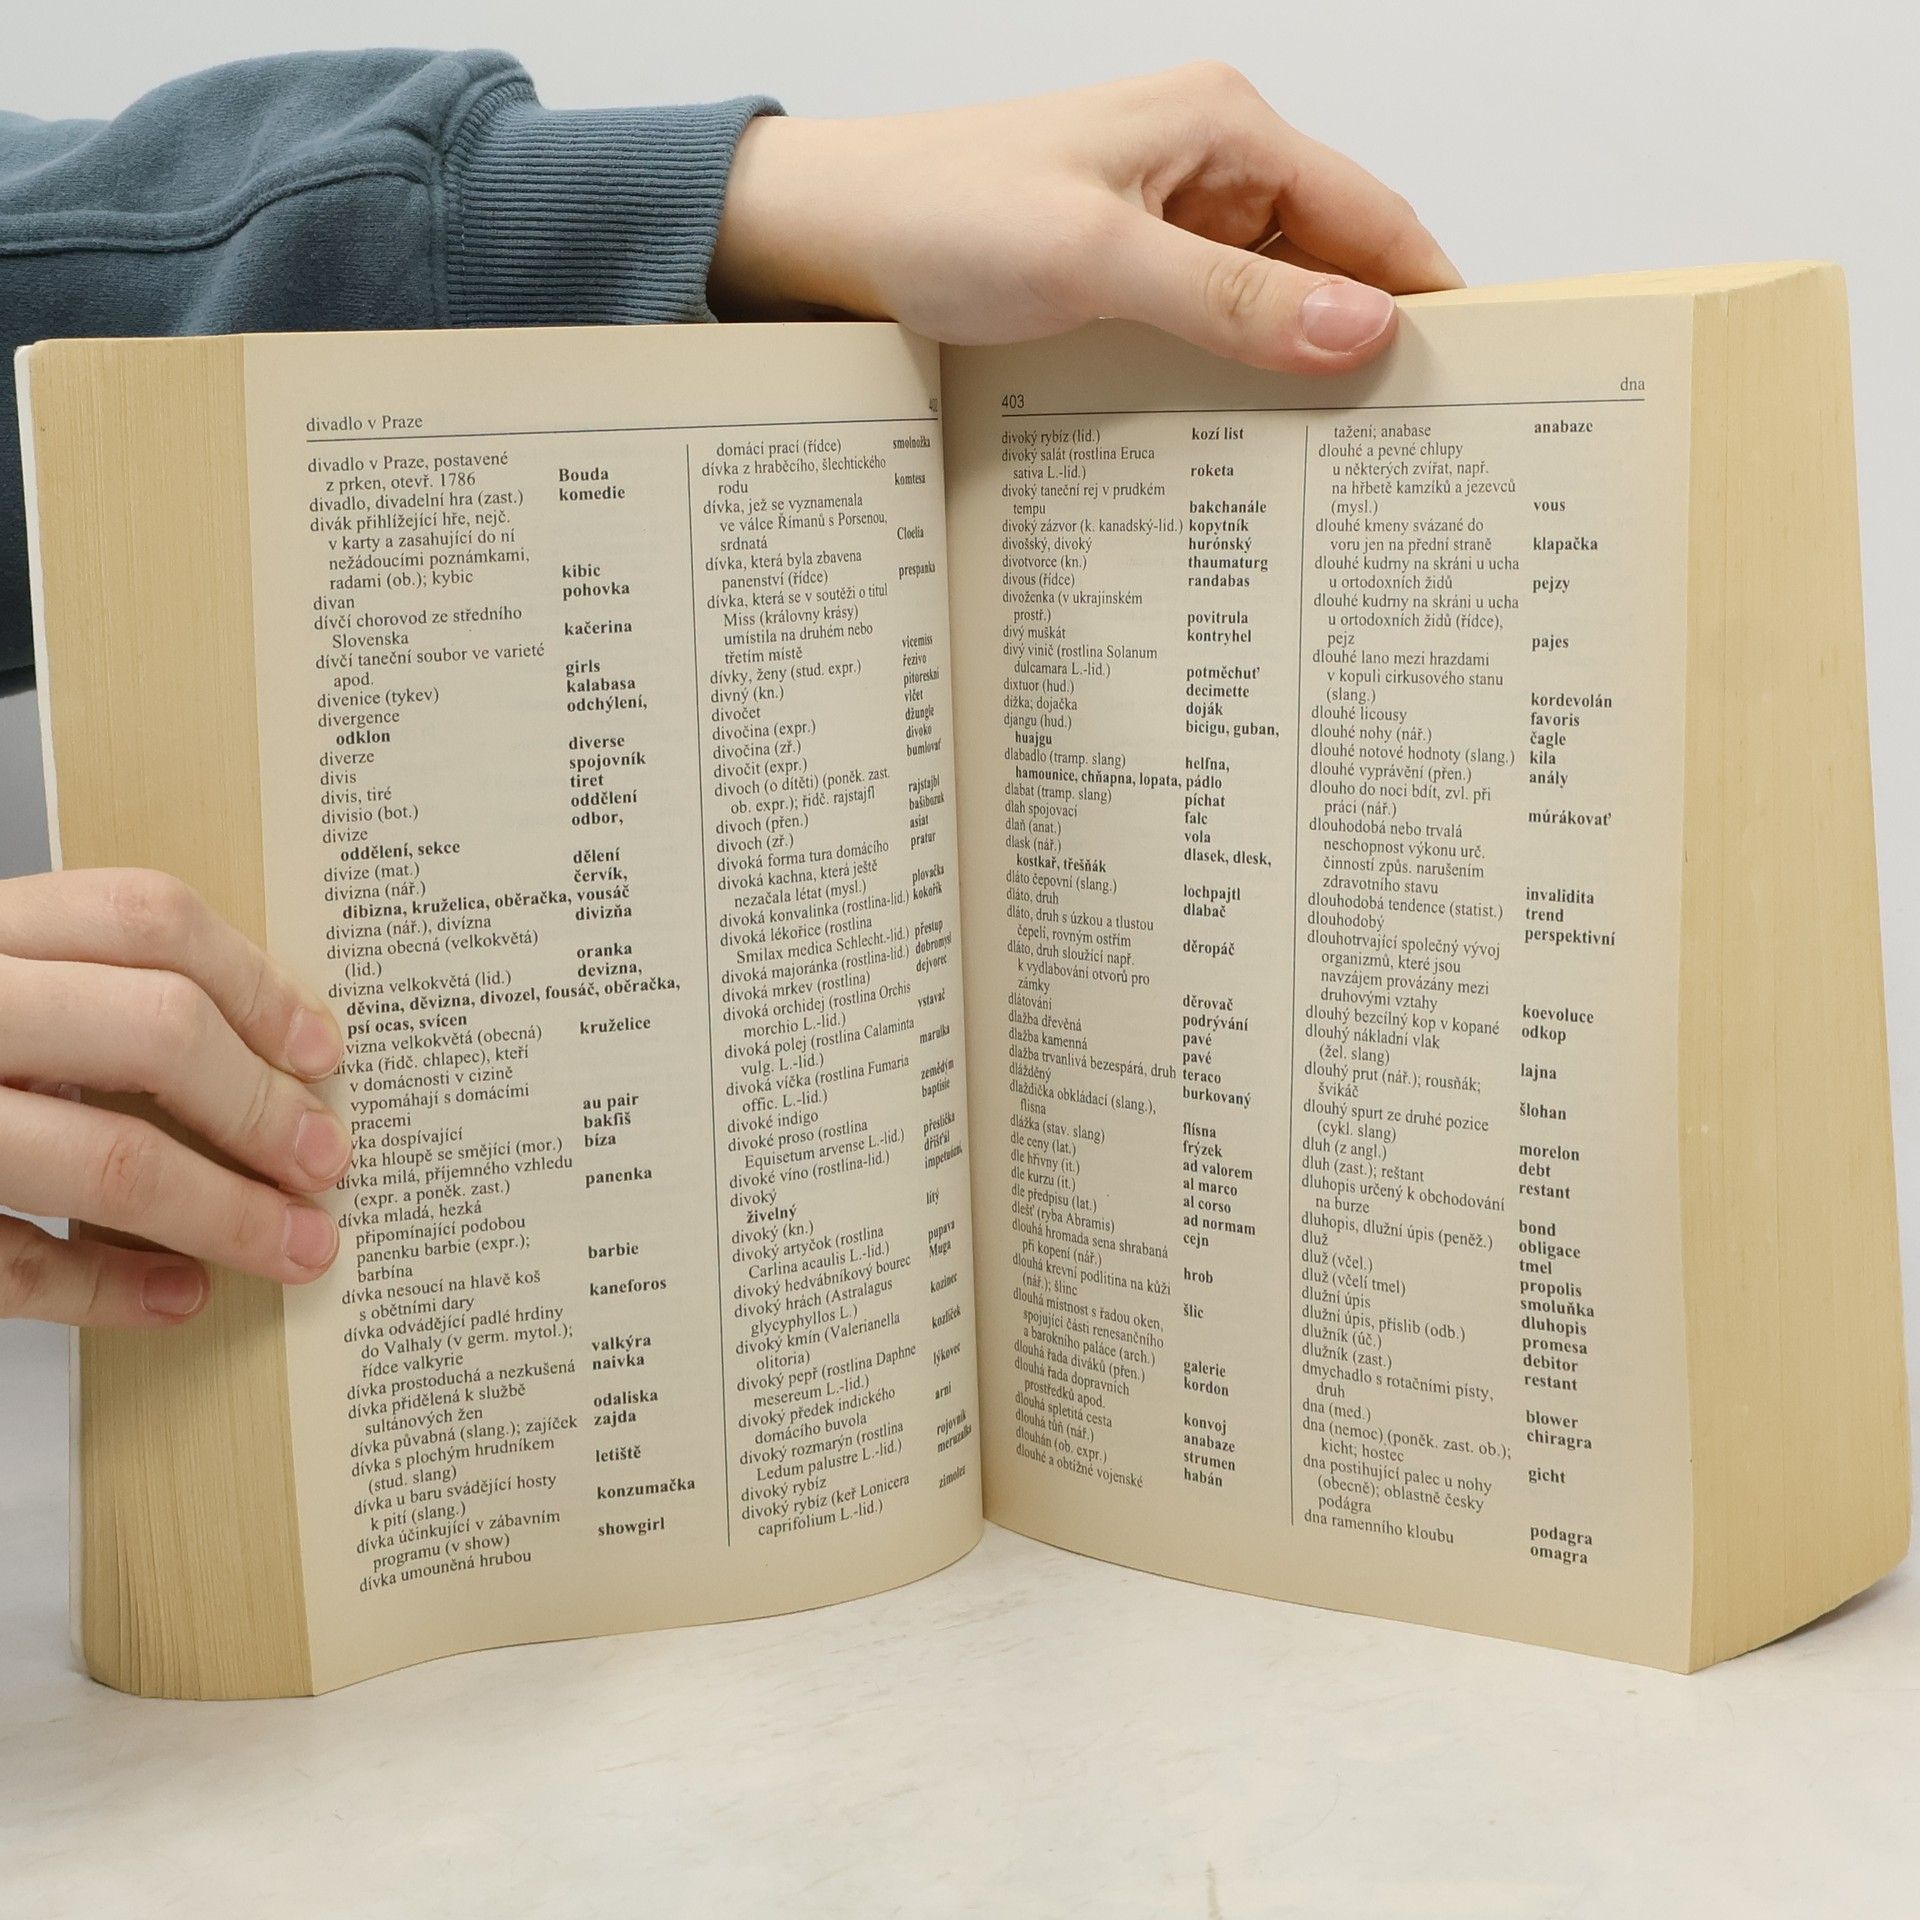 divadlo v Praze
divadlo v Praze, postavené
z prken, otevř. 1786 Bouda
divadlo, divadelní hra (zast.) komedie
divák přihlížející hře, nejč.
v karty a zasahující do ní
nežádoucími poznámkami,
radami (ob.); kybic kibic
divan pohovka
dívčí chorovod ze středního
Slovenska kačerina
dívčí taneční soubor ve varieté
apod. girls
divenice (tykev) kalabasa
divergence odchýlení,
odklon
diverze diverse
divis spojovník
divis, tiré tiret
divisio (bot.) oddělení
divize odbor,
oddělení, sekce
divize (mat.) dělení
divizna (nář.) červík,
dibizna, kruželica, oběračka, vousáč
divizna (nář.), divízna divizňa
divizna obecná (velkokvětá)
(lid.) oranka
divizna velkokvětá (lid.) devizna,
děvina, děvizna, divozel, fousáč, oběračka,
psí ocas, svícen
vizna velkokvětá (obecná) kruželice
dívka (řidč. chlapec), kteří
v domácnosti v cizině
vypomáhají s domácími
pracemi au pair
vka dospívající bakfiš
vka hloupě se smějící (mor.) bíza
dívka milá, příjemného vzhledu
(expr. a poněk. zast.) panenka
dívka mladá, hezká
připomínající podobou
panenku barbie (expr.);
barbína barbie
dívka nesoucí na hlavě koš
s obětními dary kaneforos
dívka odvádějící padlé hrdiny
do Valhaly (v germ. mytol.);
řídce valkyrie valkýra
dívka prostoduchá a nezkušená naivka
dívka přidělená k službě
sultánových žen odaliska
dívka půvabná (slang.); zajíček zajda
dívka s plochým hrudníkem
(stud. slang) letiště
dívka u baru svádějící hosty
k pití (slang.) konzumačka
dívka účinkující v zábavním
programu (v show) showgirl
dívka umouněná hrubou
domácí prací (řídce) smolnožka
dívka z hraběcího, šlechtického
rodu komtesa
dívka, jež se vyznamenala
ve válce Římanů s Porsenou,
srdnatá Cloelia
dívka, která byla zbavena
panenství (řídce) prespanka
dívka, která se v soutěži o titul
Miss (královny krásy)
umístila na druhém nebo
třetím místě vicemiss
dívky, ženy (stud. expr.) řezivo
divný (kn.) pitoreskní
divočet vlčet
divočina (expr.) džungle
divočina (zř.) divoko
divočit (expr.) bumlovať
divoch (o dítěti) (poněk. zast.
ob. expr.); řidč. rajstajfl rajstajbl
divoch (přen.) bašibozuk
divoch (zř.) asiat
divoká forma tura domácího pratur
divoká kachna, která ještě
nezačala létat (mysl.) plovačka
divoká konvalinka (rostlina-lid.) kokořík
divoká lékořice (rostlina
Smilax medica Schlecht.-lid.) přestup
divoká majoránka (rostlina-lid.) dobromysl
divoká mrkev (rostlina) dejvorec
divoká orchidej (rostlina Orchis
morchio L.-lid.) vstavač
divoká polej (rostlina Calaminta
vulg. L.-lid.) marulka
divoká víčka (rostlina Fumaria
offic. L.-lid.) zemědým
divoké indigo baptisie
divoké proso (rostlina
Equisetum arvense L.-lid.) přeslička
divoké víno (rostlina-lid.) dřišťál
divoký
živelný lítý
divoký (kn.)
divoký artyčok (rostlina
Carlina acaulis L.-lid.) pupava
divoký hedvábníkový bourec Muga
divoký hrách (Astralagus
glycyphyllos L.) kozinec
divoký kmín (Valerianella
olitoria) kozlíček
divoký pepř (rostlina Daphne
mesereum L.-lid.) lýkovec
divoký předek indického
domácího buvola arni
divoký rozmarýn (rostlina
Ledum palustre L.-lid.) rojovník
divoký rybíz meruzalka
divoký rybíz (keř Lonicera
caprifolium L.-lid.) zimolez
403 dna
divoký rybíz (lid.) kozí list
divoký salát (rostlina Eruca
sativa L.-lid.) roketa
divoký taneční rej v prudkém
tempu bakchanále
divoký zázvor (k. kanadský-lid.) kopytník
divošský, divoký hurónský
divotvorce (kn.) thaumaturg
divous (řídce) randabas
divoženka (v ukrajinském
prostř.) povitrula
divý muškát kontryhel
divý vinič (rostlina Solanum
dulcamara L.-lid.) potměchuť
dixtuor (hud.) decimette
dížka; dojačka doják
djangu (hud.) bicigu, guban,
huajgu
dlabadlo (tramp. slang) helfna,
hamounice, chňapna, lopata, pádlo
dlabat (tramp. slang) píchat
dlah spojovací falc
dlaň (anat.) vola
dlask (nář.) dlasek, dlesk,
kostkař, třešňák
dláto čepovní (slang.) lochpajtl
dláto, druh dlabač
dláto, druh s úzkou a tlustou
čepelí, rovným ostřím děropáč
dláto, druh sloužící např.
k vydlabování otvorů pro
zámky děrovač
dlátování podrývání
dlažba dřevěná pavé
dlažba kamenná pavé
dlažba trvanlivá bezespárá, druh teraco
dlážděný burkovaný
dlaždička obkládací (slang.),
flisna flísna
dlážka (stav. slang) frýzek
dle ceny (lat.) ad valorem
dle hřivny (it.) al marco
dle kurzu (it.) al corso
dle předpisu (lat.) ad normam
dlešť (ryba Abramis) cejn
dlouhá hromada sena shrabaná
při kopení (nář.) hrob
dlouhá krevní podlitina na kůži
(nář.); šlinc šlic
dlouhá místnost s řadou oken,
spojující části renesančního
a barokního paláce (arch.) galerie
dlouhá řada diváků (přen.) kordon
dlouhá řada dopravních
prostředků apod. konvoj
dlouhá spletitá cesta anabaze
dlouhá tůň (nář.) strumen
dlouhán (ob. expr.) habán
dlouhé a obtížné vojenské
tažení; anabase anabaze
dlouhé a pevné chlupy
u některých zvířat, např.
na hřbetě kamzíků a jezevců
(mysl.) vous
dlouhé kmeny svázané do
voru jen na přední straně klapačka
dlouhé kudrny na skráni u ucha
u ortodoxních židů pejzy
dlouhé kudrny na skráni u ucha
u ortodoxních židů (řídce),
pejz pajes
dlouhé lano mezi hrazdami
v kopuli cirkusového stanu
(slang.) kordevolán
dlouhé licousy favoris
dlouhé nohy (nář.) čagle
dlouhé notové hodnoty (slang.) kila
dlouhé vyprávění (přen.) anály
dlouho do noci bdít, zvl. při
práci (nář.) múrákovať
dlouhodobá nebo trvalá
neschopnost výkonu urč.
činností způs. narušením
zdravotního stavu invalidita
dlouhodobá tendence (statist.) trend
dlouhodobý perspektivní
dlouhotrvající společný vývoj
organizmů, které jsou
navzájem provázány mezi
druhovými vztahy koevoluce
dlouhý bezcílný kop v kopané odkop
dlouhý nákladní vlak
(žel. slang) lajna
dlouhý prut (nář.); rousňák;
švikáč šlohan
dlouhý spurt ze druhé pozice
(cykl. slang) morelon
dluh (z angl.) debt
dluh (zast.); reštant restant
dluhopis určený k obchodování
na burze bond
dluhopis, dlužní úpis (peněž.) obligace
dluž tmel
dluž (včel.) propolis
dluž (včelí tmel) smoluňka
dlužní úpis dluhopis
dlužní úpis, příslib (odb.) promesa
dlužník (úč.) debitor
dlužník (zast.) restant
dmychadlo s rotačními písty,
druh blower
dna (med.) chiragra
dna (nemoc) (poněk. zast. ob.);
kicht; hostec gicht
dna postihující palec u nohy
(obecně); oblastně česky
podágra podagra
dna ramenního kloubu omagra